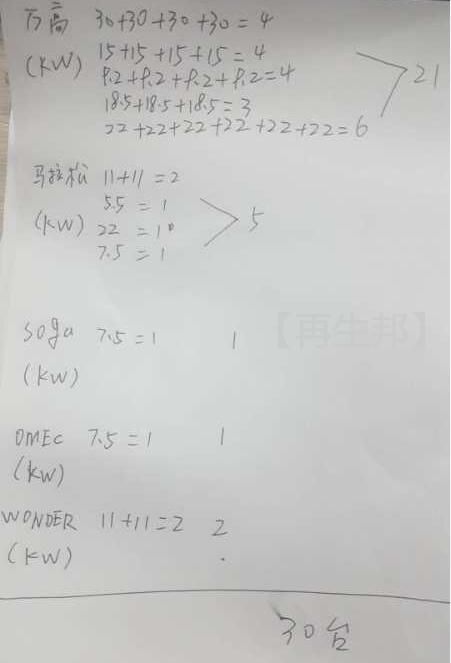 万高 30+30+30+30=4
(KW) 15+15+15+15=4
9.2+9.2+9.2+9.2=4
18.5+18.5+18.5=3
22+22+22+22+22+22=6
21
马拉松 11+11=2
5.5=1
(KW) 22=1
7.5=1
5
soga 7.5=1 1
(KW)
【再生邦】
OMEC 7.5=1 1
(KW)
WONDER 11+11=2 2
(KW)
30台